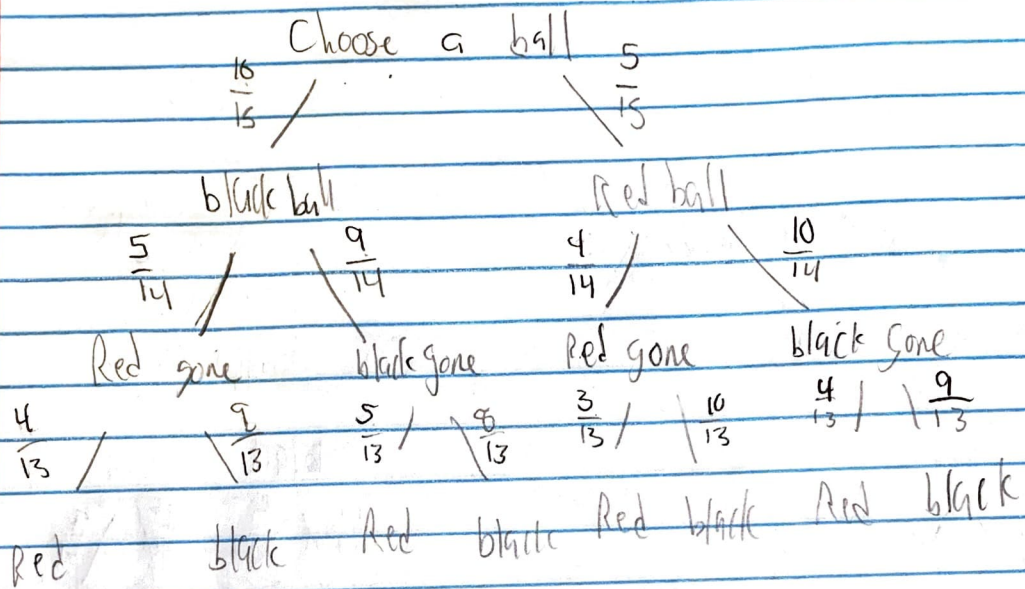 Choose a ball
10/15 5/15
black ball Red ball
5/14 9/14 4/14 10/14
Red gone black gone Red gone black gone
4/13 9/13 5/13 8/13 3/13 10/13 4/13 9/13
Red black Red black Red black Red black